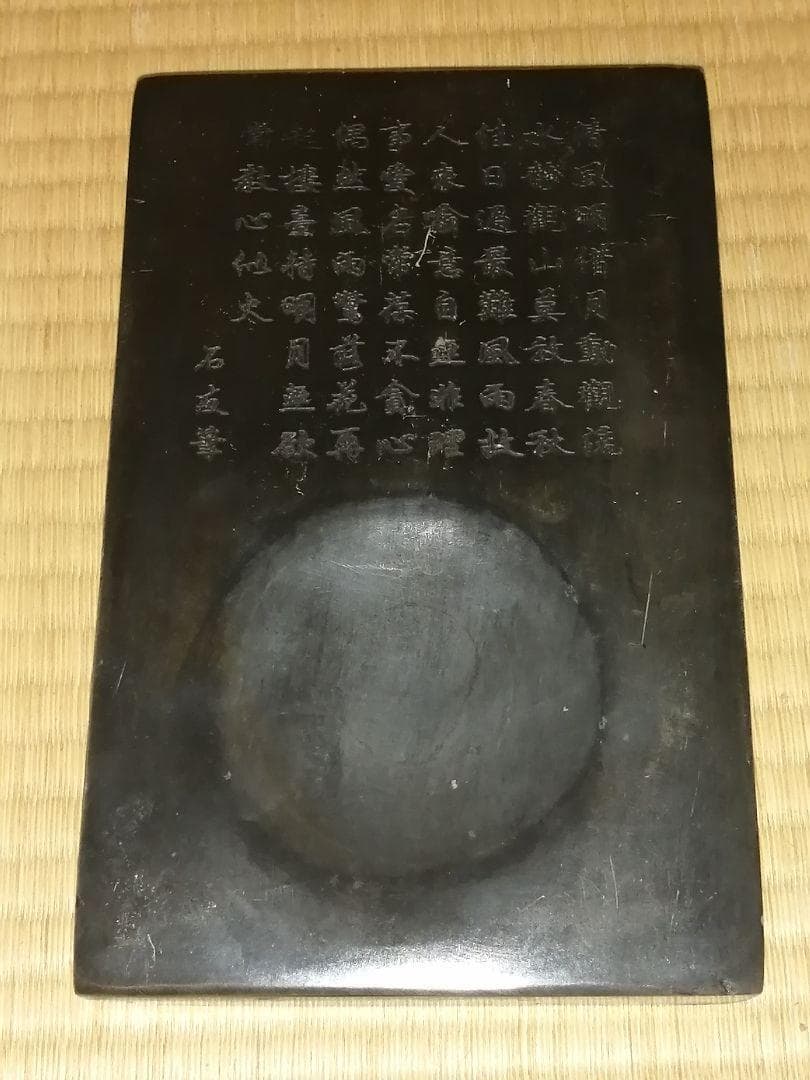 清風明借月動觀流
水靜觀山莫放春秋
佳日過最難風雨故
人來喻意自無非理
事愛君常葆不貪心
偶然風雨驚落花再
起樓臺待明月無欲
常教心似火
石友筆